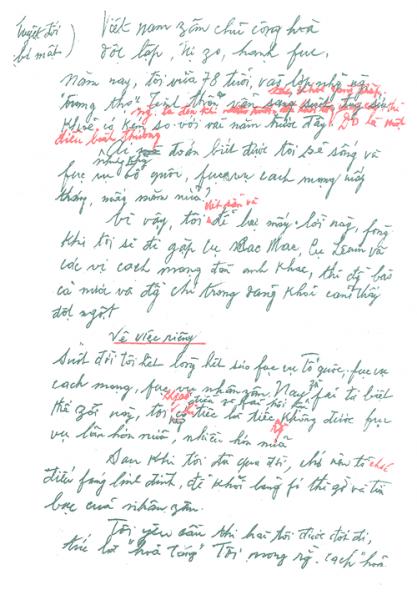 Tuyệt đối bí mật
Việt nam zân chủ cộng hoà
độc lập, tự zo, hạnh fuc.
Năm nay, tôi vừa 78 tuổi, vào lớp những
"trung thọ". Tinh thần vẫn sáng suốt, tuy sức
khoẻ có kém so với vài năm trước đây. Đó là một
điều bình thường
Ai đoán biết được tôi sẽ sống và
fục vụ tổ quốc, fục vụ cách mạng mấy
tháng, mấy năm nữa?
Vì vậy, tôi viết sẵn và để lại mấy lời này, fòng
khi tôi sẽ đi gặp Cụ Các Mác, Cụ Lênin và
các vị cách mạng đàn anh khác, thì đồng bào
cả nước và đồng chí trong đảng khỏi cảm thấy
đột ngột
Về việc riêng
Suốt đời tôi hết lòng hết sức fục vụ Tổ quốc, fục vụ
cách mạng, fục vụ nhân zân. Nay zù fải từ biệt
thế zới này, tôi không có điều gì fải hối hận, chỉ
tiếc là tiếc rằng không được fục
vụ lâu hơn nữa, nhiều hơn nữa
Sau khi tôi đã qua đời, chớ nên tổ chức
điếu fúng linh đình, để khỏi lãng fí thì giờ và tiền
bạc của nhân zân.
Tôi yêu cầu thi hài tôi được đốt đi,
tức là "hoả táng". Tôi mong rằng cách "hoả